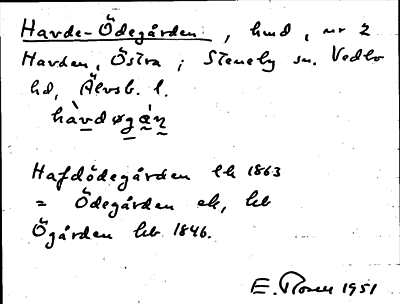 Havde-Ödegården, hmd, nr 2
Havden, Östra; Steneby sn. Vedbo
hd, Älvsb. l.
hàvdøgá̀n
Hafdödegården ek 1863
= Ödegården ek, kb
Ögården kb 1846.
E. Rosen 1951